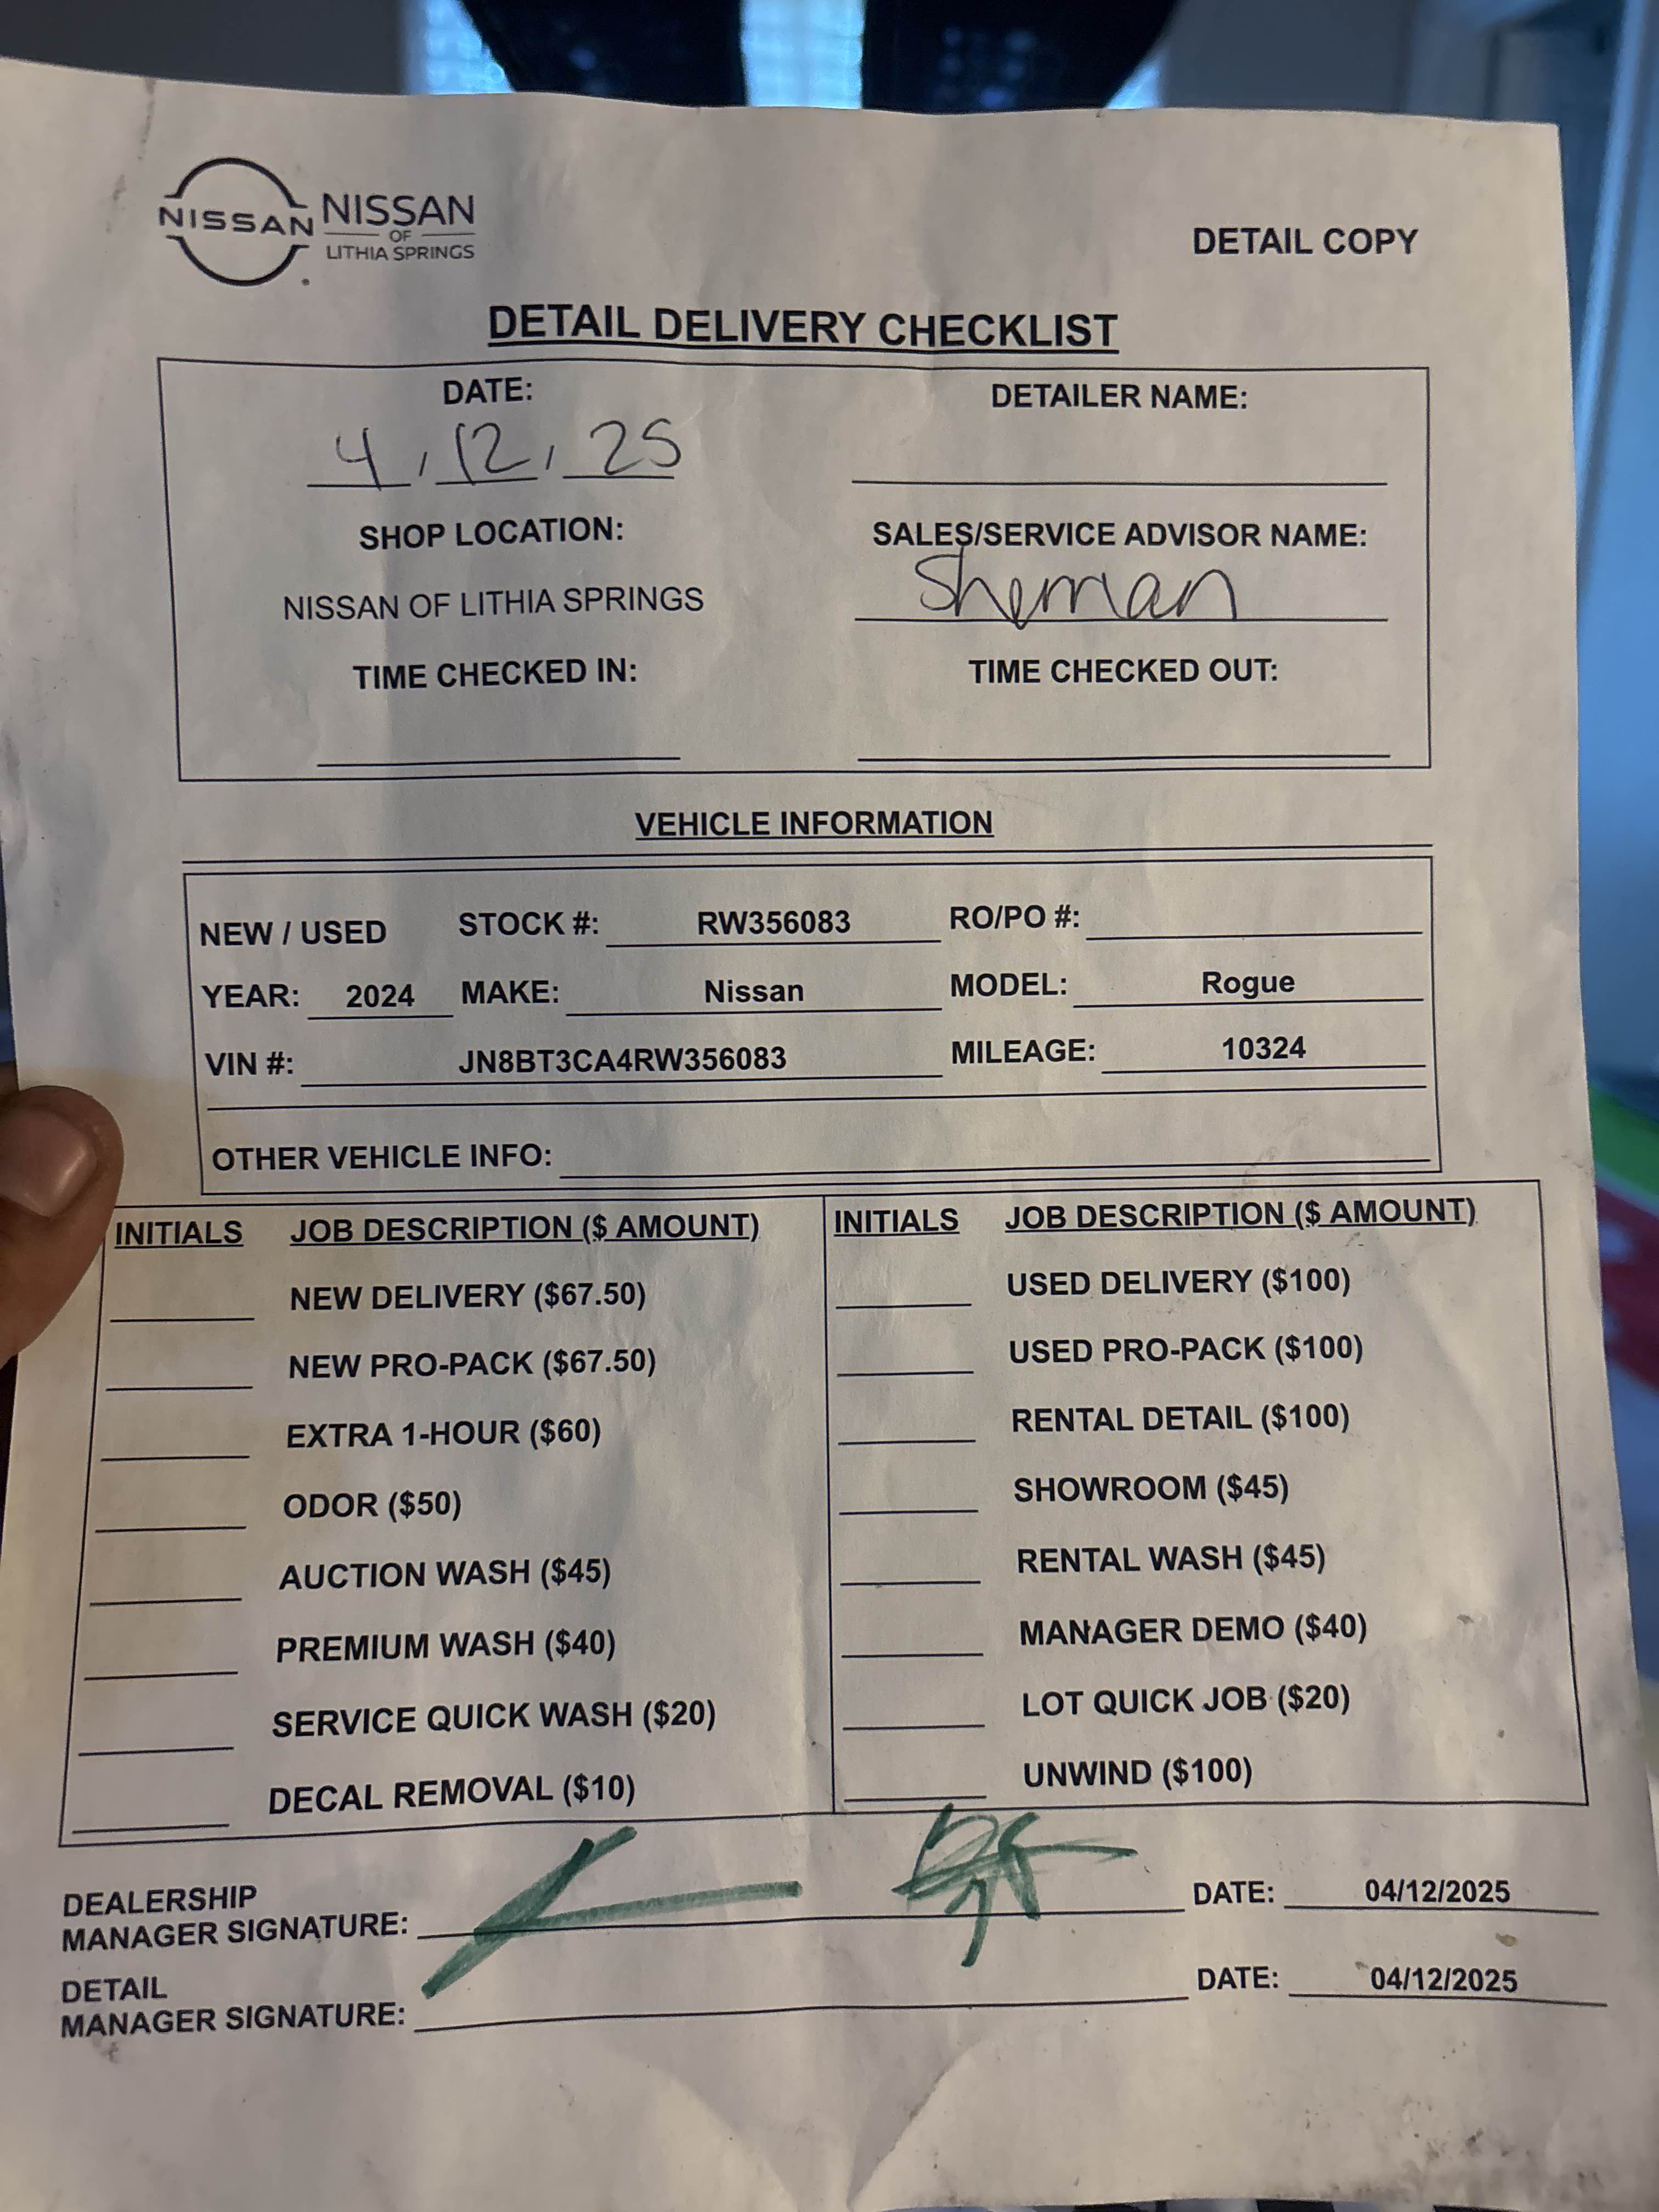 NISSAN
NISSAN
OF
LITHIA SPRINGS
DETAIL COPY
DETAIL DELIVERY CHECKLIST
DATE: DETAILER NAME:
4, 12, 25
SHOP LOCATION: SALES/SERVICE ADVISOR NAME:
NISSAN OF LITHIA SPRINGS Sheman
TIME CHECKED IN: TIME CHECKED OUT:
VEHICLE INFORMATION
NEW / USED STOCK #: RW356083 RO/PO #:
YEAR: 2024 MAKE: Nissan MODEL: Rogue
VIN #: JN8BT3CA4RW356083 MILEAGE: 10324
OTHER VEHICLE INFO:
INITIALS JOB DESCRIPTION ($ AMOUNT) INITIALS JOB DESCRIPTION ($ AMOUNT)
NEW DELIVERY ($67.50) USED DELIVERY ($100)
NEW PRO-PACK ($67.50) USED PRO-PACK ($100)
EXTRA 1-HOUR ($60) RENTAL DETAIL ($100)
ODOR ($50) SHOWROOM ($45)
AUCTION WASH ($45) RENTAL WASH ($45)
PREMIUM WASH ($40) MANAGER DEMO ($40)
SERVICE QUICK WASH ($20) LOT QUICK JOB ($20)
DECAL REMOVAL ($10) UNWIND ($100)
DEALERSHIP
MANAGER SIGNATURE: DATE: 04/12/2025
DETAIL
MANAGER SIGNATURE: DATE: 04/12/2025